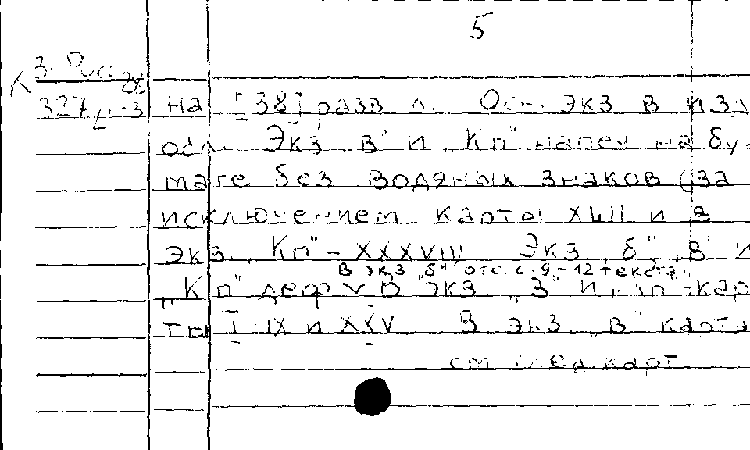 5
на [38] разв л. Осн. экз в и з
осл. Экз в" и „Кп" напеч на бу-
маге без водяных знаков (за
исключением карты XLII и в
экз. „Кп" – XXXVIII Экз „б", „в" и
в экз „б" отс. с. 9-12 текста,
„Кп" деф у в экз „в" и „Кп"-кар
ты I IX и XXV В экз „в" карта
см след карт.